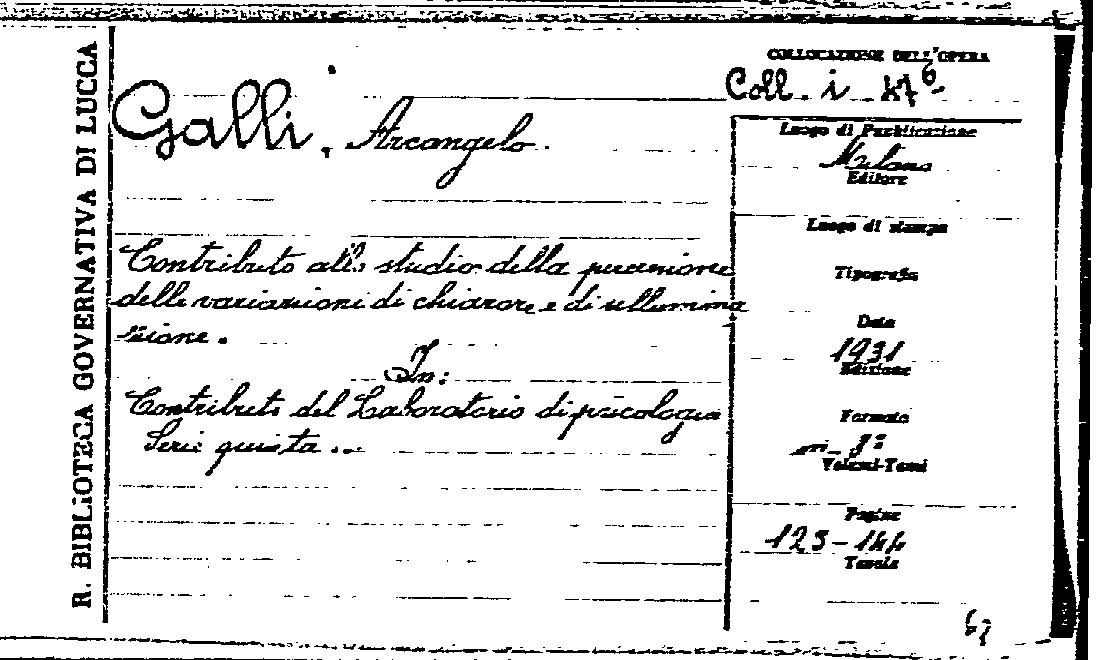 R. BIBLIOTECA GOVERNATIVA DI LUCCA
Galli, Arcangelo.
Contributo allo studio della percezione
delle variazioni di chiarore e di illumina
zione.
In:
Contributi del Laboratorio di psicologia
Serie quinta...
COLLOCAZIONE DELL'OPERA
Coll. i
Luogo di Pubblicazione
Milano
Editore
Luogo di stampa
Tipografia
Data
1931
Edizione
Formato
in-8°
Volumi-Tomi
Pagine
123-144
Tavole